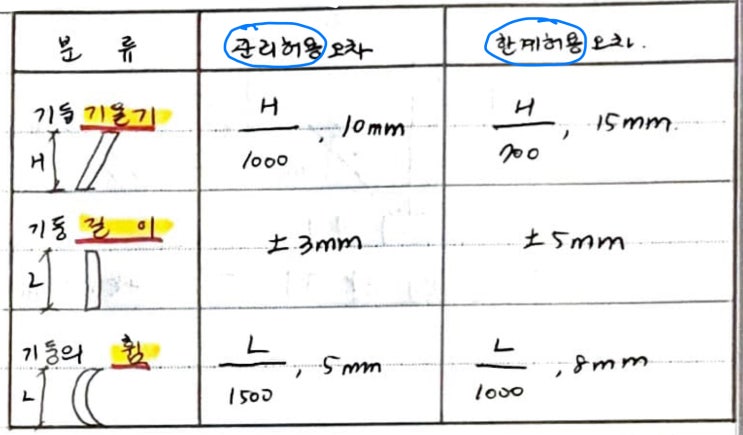 분 류 관리허용오차 한계허용오차.
기둥 기울기 H/1000, 10mm H/700, 15mm.
H
기둥 길이 ±3mm ±5mm
L
기둥의 휨 L/1500, 5mm L/1000, 8mm
L